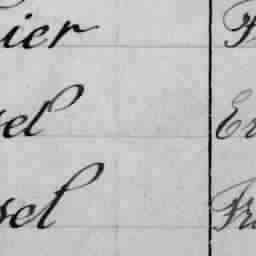 ier F
sel Er
sel Fr